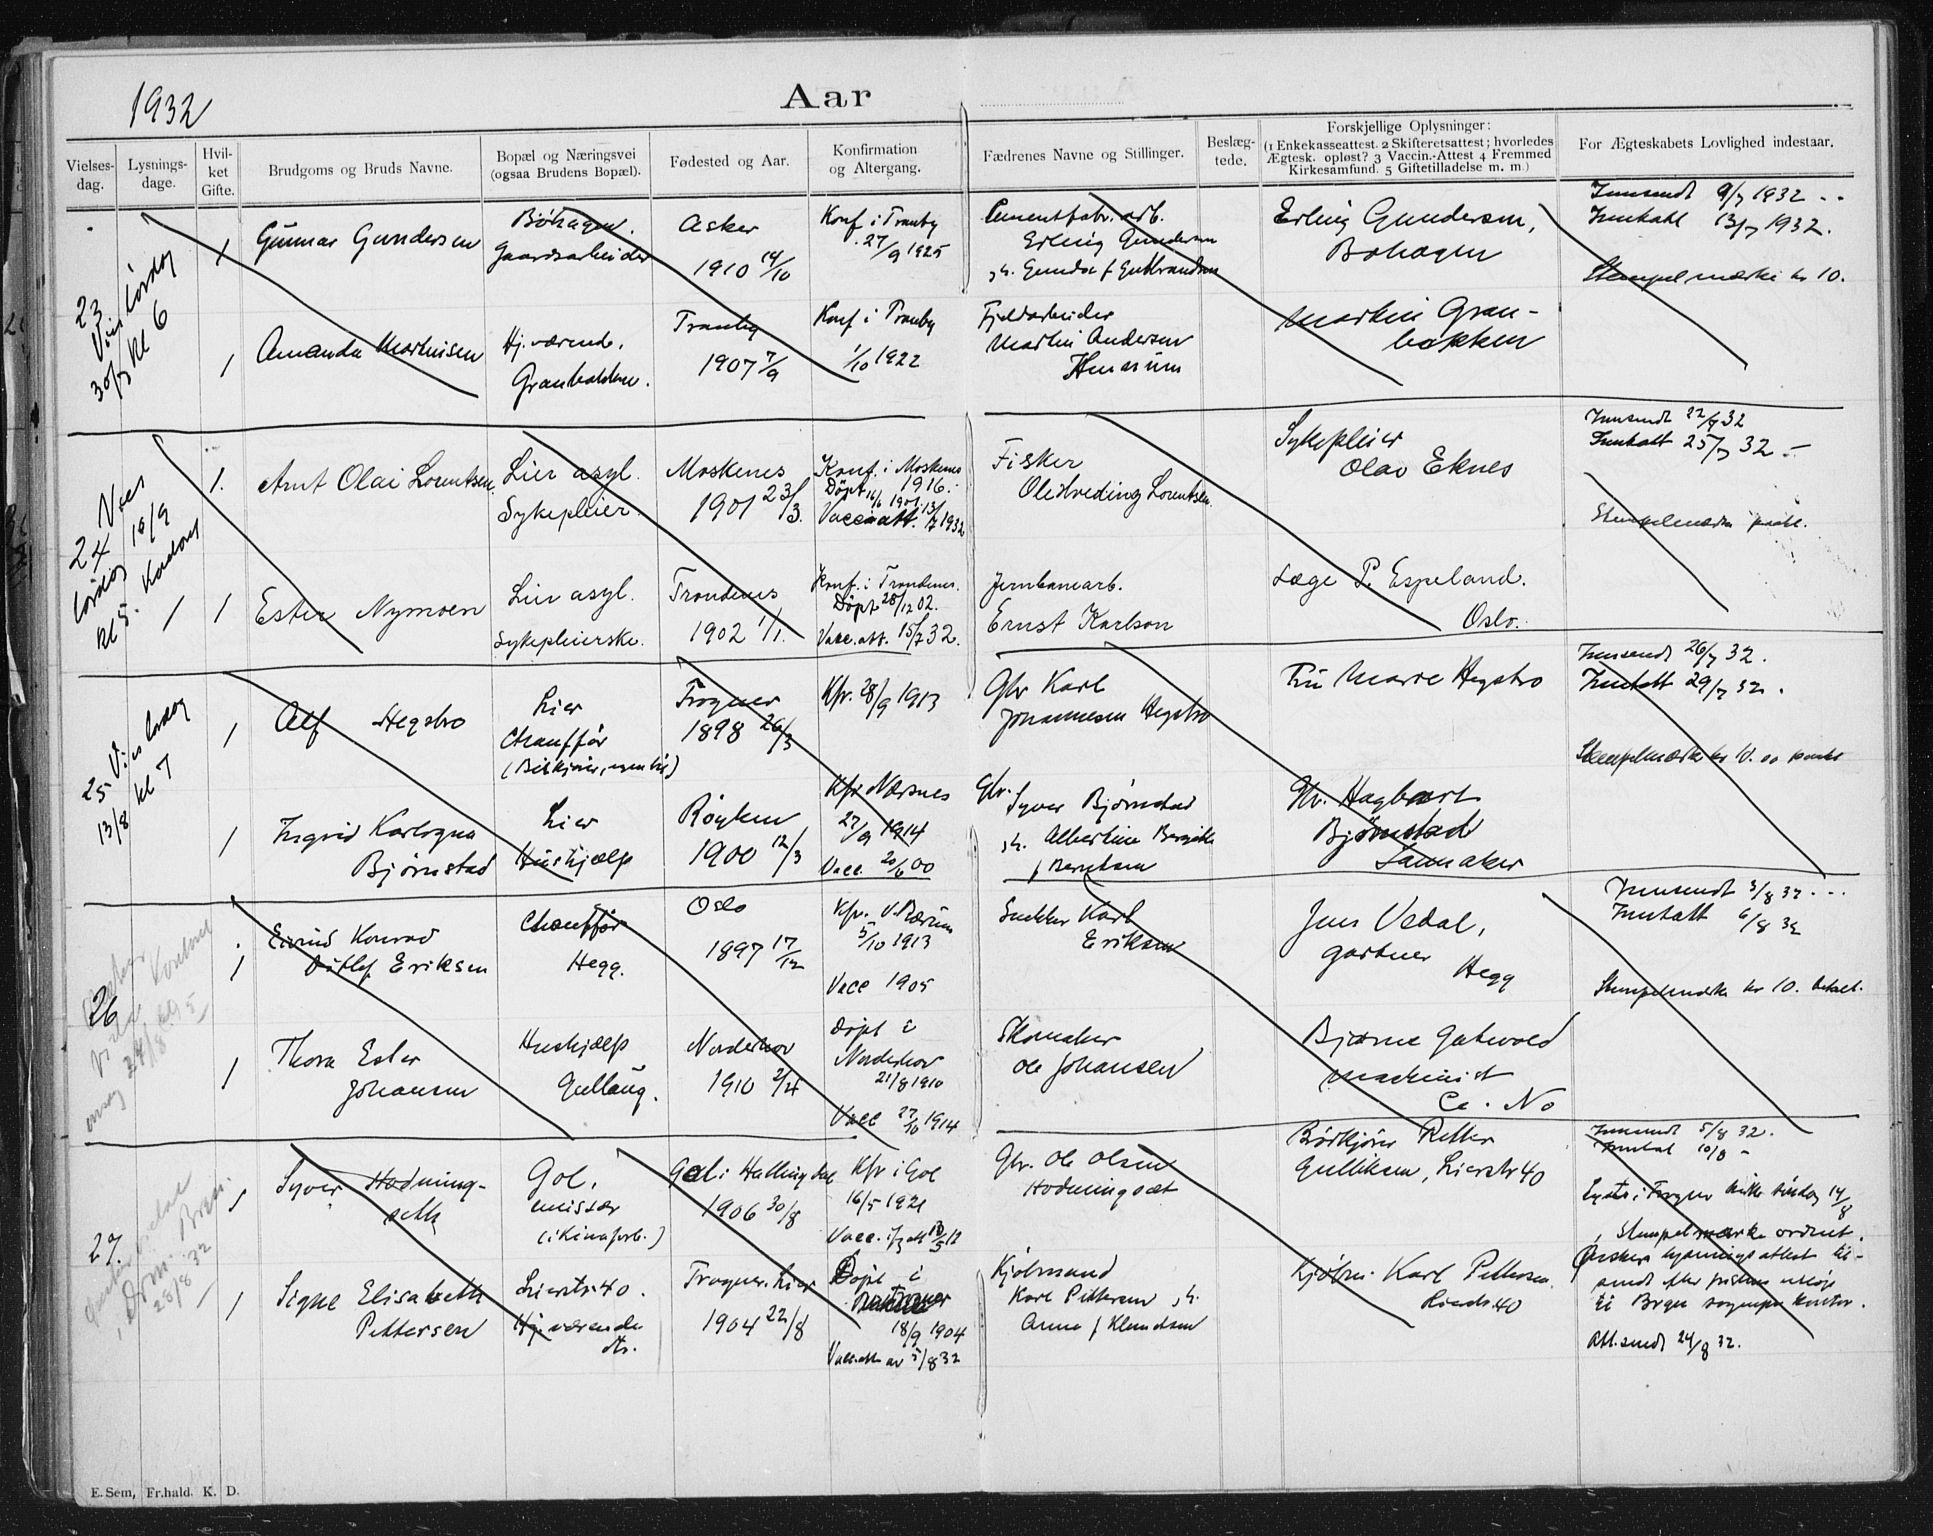 1932
Aar
Vielses-dag.
Lysnings-dage.
Hvil-ket Gifte.
Brudgoms og Bruds Navne.
Bopæl og Næringsvei
(ogsaa Brudens Bopæl).
Fødested og Aar.
Konfirmation
og Altergang.
Fædrenes Navne og Stillinger.
Beslæg-tede.
Forskjellige Oplysninger:
(1 Enkekasseattest. 2 Skifteretsattest; hvorledes
Ægtesk. opløst? 3 Vaccin.-Attest 4 Fremmed
Kirkesamfund. 5 Giftetilladelse m. m.)
For Ægteskabets Lovlighed indestaar.
23
Vies lørdag
30/7 kl 6
1
Gunnar Gundersen
Böhagen.
Gaardsarbeider
Asker
1910 14/10
Konf i Tranby
27/9 1925
Cementfabr. arb.
Erling Gundersen
Erling Gundersen,
Bohagen
Innsendt 9/7 1932
Inntatt 13/7 1932.
Stempelmerke kr 10.
1
Amanda Martinsen
Hj.værende,
Granbakken.
Tranby
1907 7/9
Konf i Tranby
1/10 1922
Fjeldarbeider
Martin Andersen
Martin Gran-
bakken
24 Vies
lørdag 10/9
kl 5. Kontoret
1.
Arnt Olai Lorentsen
Lier asyl.
Sykepleier.
Moskenes
1901 23/3.
Konf. i Moskenes
1916.
Döpt 16/6 1901.
Vacc. att. 13/7 1932
Fisker
Ole Hveding Lorentsen
Sykepleier
Olav Eknes
Innsendt 22/7 32
Inntatt 25/7 32
Stempelmerke
1
Ester Nymoen
Lier asyl.
Sykepleierske.
Trondenes
1902 1/1.
Konf. i Trondenes.
Döpt 28/12 02.
Vacc. att. 15/7 32.
Jernbanearb.
Ernst Karlson
Læge P. Espeland.
Oslo.
25 Vies lørdag
13/8 kl 7
1
Alf Hegsbro
Lier
Chauffør
Frogner
1898 26/3
Kfr. 28/9 1913
Gbr Karl
Johannesen Hegsbro
Fru Marie Hegsbro
Innsendt 26/7 32.
Inntatt 29/7 32.
Stempelmerke kr 10.00
1
Ingrid Karlogna
Bjørnstad
Lier
Hushjælp
Røyken
1900 12/3
Kfr Nærsnes
27/9 1914
Vacc. 20/6 00
Gbr.
Syver Bjørnstad
f Berntsen
Gbr. Hagbart
Bjørnstad
26
24/8 kl 5
1
Eivind Konrad
Ditlef Eriksen
Chauffør
Hegg.
Oslo
1897 17/12
Kfr. V. Bærum
5/10 1913
Vacc 1905
Snekker Karl
Eriksen
Jens Vedal,
gartner
Hegg
Innsendt 3/8 32
Inntatt 6/8 32
Stempelmerke kr 10. betalt.
1
Thora Ester
Johansen
Hushjælp
Gullaug.
Norderhov
1910 2/4
Döpt i
Norderhov
21/8 1910
Vacc 27/10 1914
Skomaker
Ole Johansen
Bjarne Gatevold
Maskinist
Ce. No
27.
25/8 32
1
Syver Hodnung-
seth
Gol,
emissær
(i Kinaforb.)
Gol i Hallingdal
1906 30/8
Kfr i Gol
16/5 1921
Gbr. Ole Olsen
Hodnungset
Petter
Gulliksen, Lierstr 40
Innsendt 5/8 32.
Inntat 10/8
Stempelmerke ordnet.
1
Signe Elisabeth
Pettersen
Lierstr. 40.
Hj.værende
dtr.
Frogner. Lier
1904 22/8
Döpt i
Frogner
18/9 1904
Vacc. att av 5/8 32
Kjølmand
Karl Pettersen
Anna f Klemetsen
Karl Pettersen
Att. sendt 24/8 32.
E. Sem, Fr.hald. K. D.